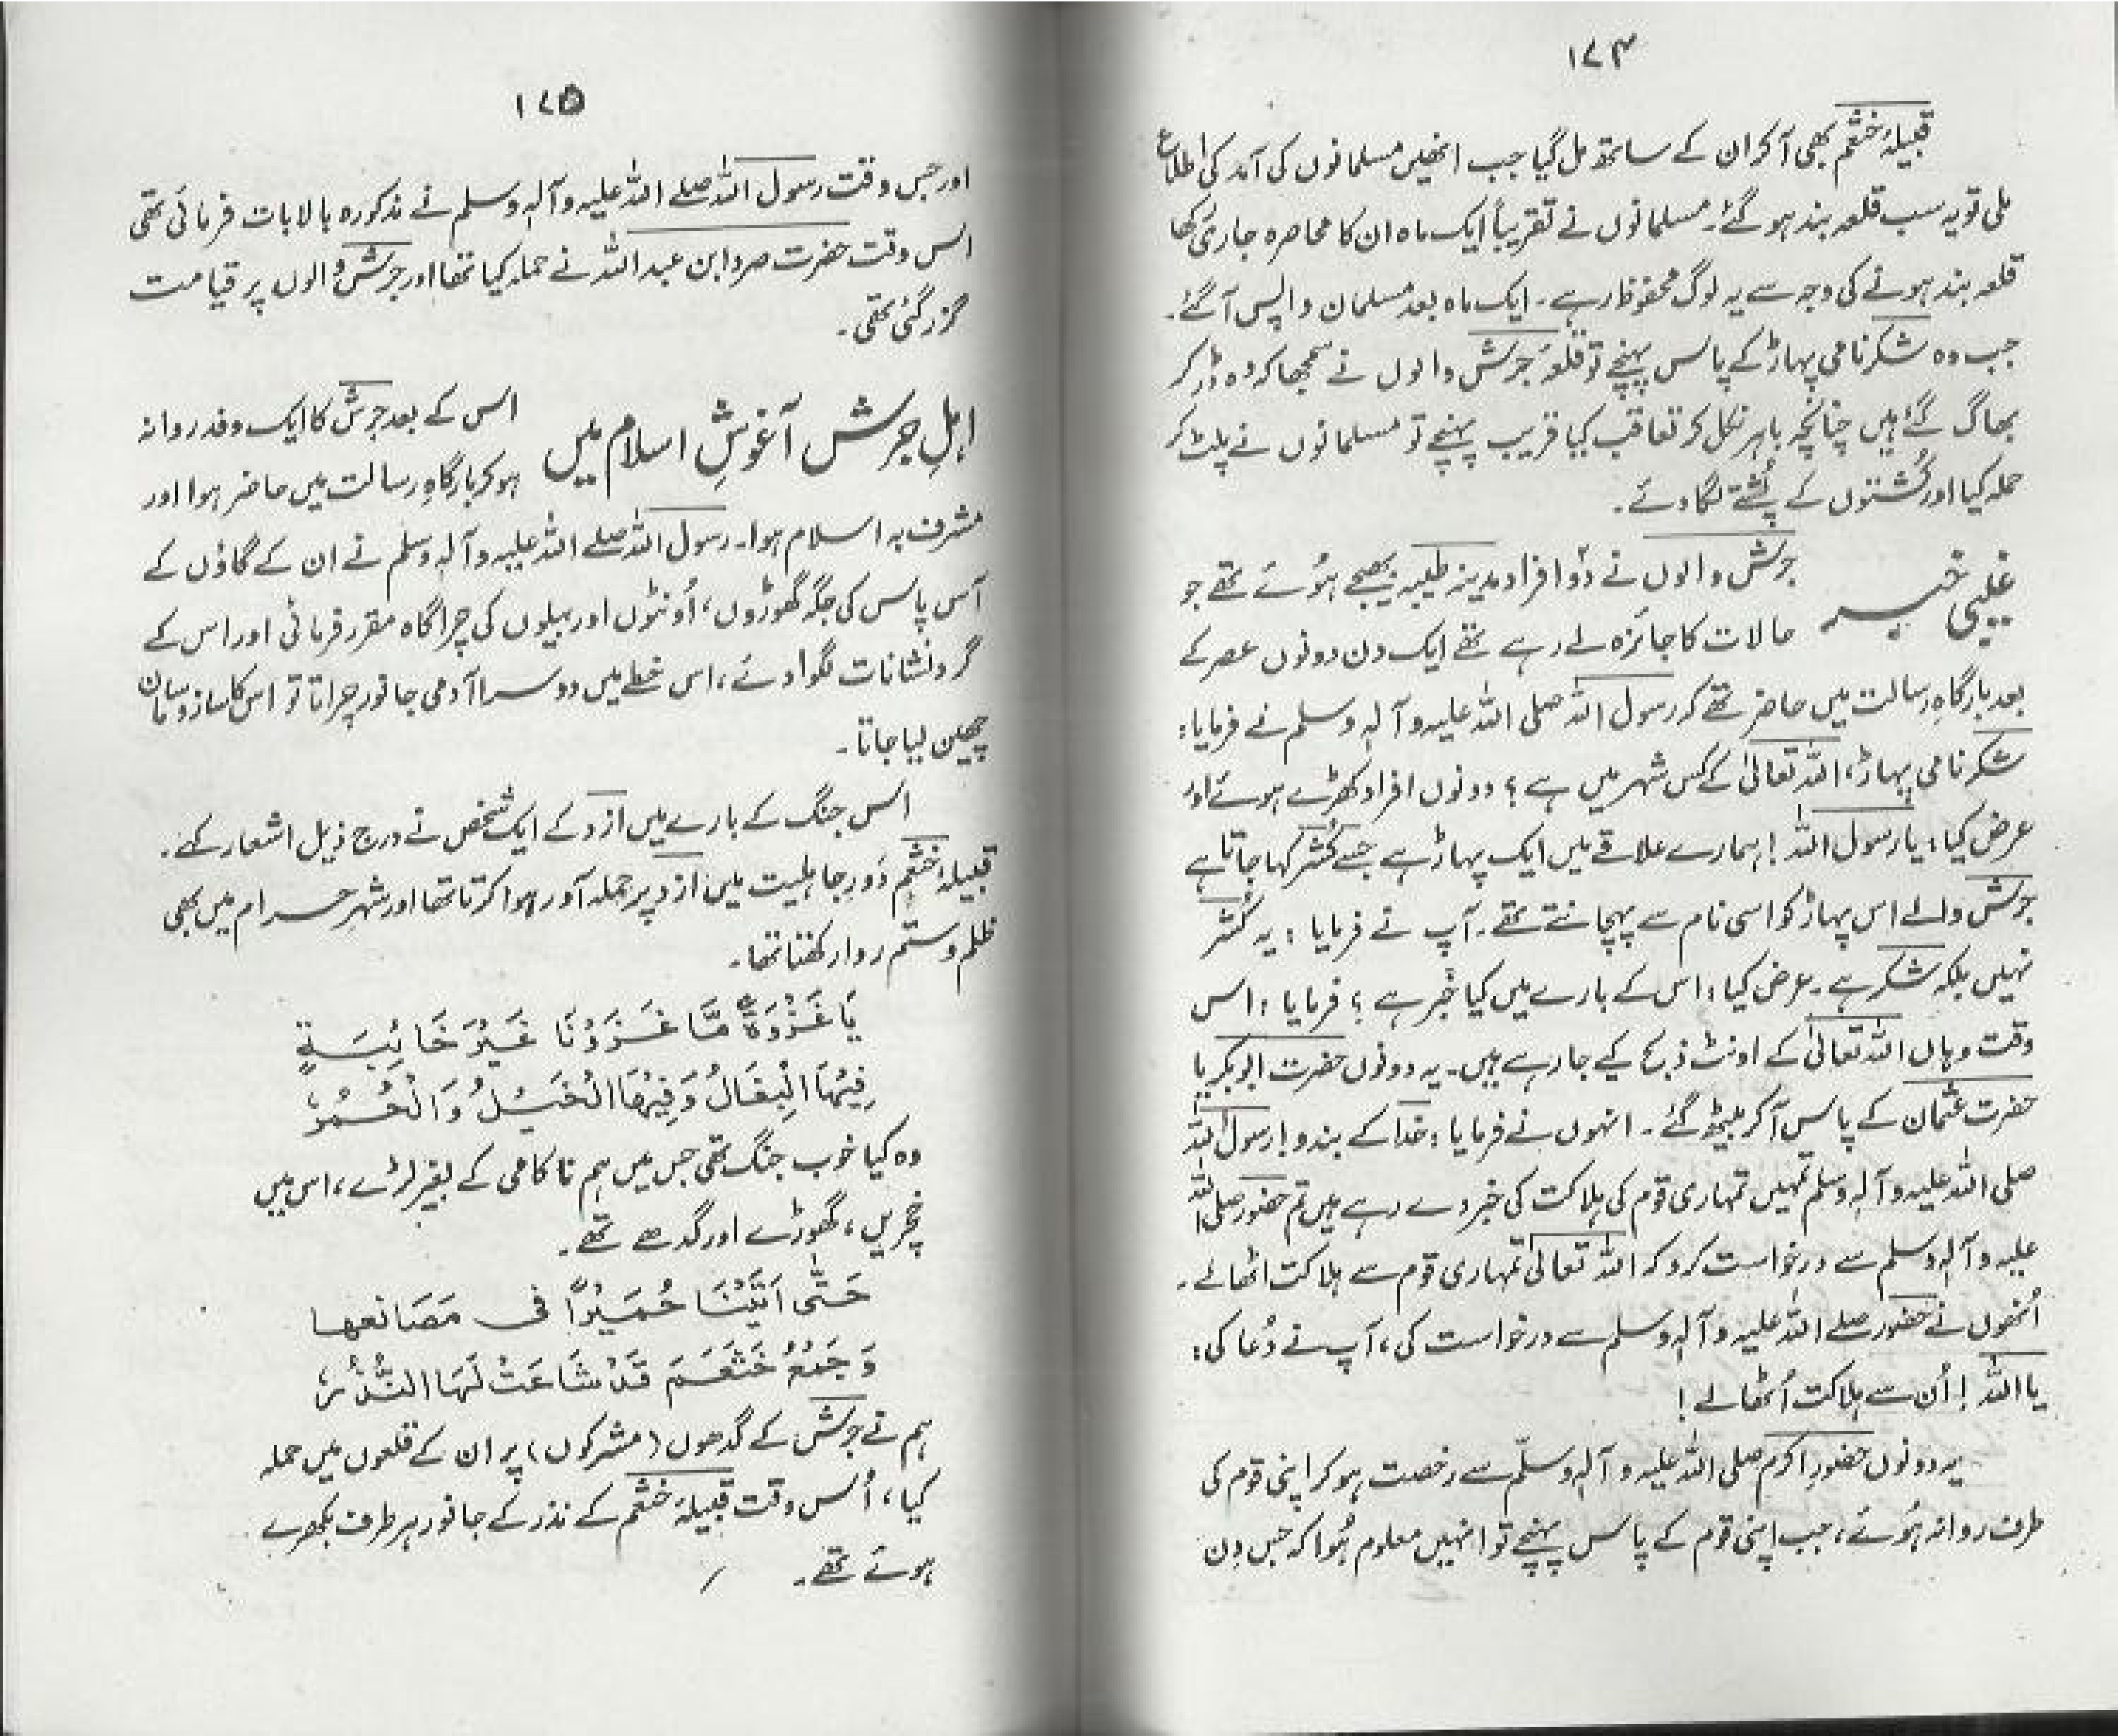 ۱۷۴
قبیلۂ خثعم بھی آکر ان کے ساتھ مل گیا جب انھیں مسلمانوں کی آمد کی اطلاع
ملی تو یہ سب قلعہ بند ہو گئے۔ مسلمانوں نے تقریباً ایک ماہ ان کا محاصرہ جاری رکھا
قلعہ بند ہونے کی وجہ سے یہ لوگ محفوظ رہے۔ ایک ماہ بعد مسلمان واپس آگئے۔
جب وہ شکر نامی پہاڑ کے پاس پہنچے تو قلعۂ جرش والوں نے سمجھا کہ وہ ڈر کر
بھاگ گئے ہیں چنانچہ باہر نکل کر تعاقب کیا قریب پہنچے تو مسلمانوں نے پلٹ کر
حملہ کیا اور کُشتوں کے پُشتے لگا دئے۔
غیبی خبر
جرش والوں نے دو افراد مدینہ طیبہ بھیجے ہوئے تھے جو
حالات کا جائزہ لے رہے تھے ایک دن دونوں عصر کے
بعد بارگاہِ رسالت میں حاضر تھے کہ رسول اللہ صلی اللہ علیہ وآلہٖ وسلم نے فرمایا:
شکر نامی پہاڑ، اللہ تعالیٰ کے کس شہر میں ہے؟ دونوں افراد کھڑے ہوئے اور
عرض کیا: یا رسول اللہ! ہمارے علاقے میں ایک پہاڑ ہے جسے کُشر کہا جاتا ہے
جرش والے اس پہاڑ کو اسی نام سے پہچانتے تھے۔ آپ نے فرمایا: یہ کُشر
نہیں بلکہ شکر ہے۔ عرض کیا: اس کے بارے میں کیا خبر ہے؟ فرمایا: اس
وقت وہاں اللہ تعالیٰ کے اونٹ ذبح کیے جا رہے ہیں۔ یہ دونوں حضرت ابوبکر یا
حضرت عثمان کے پاس آکر بیٹھ گئے۔ انہوں نے فرمایا: خدا کے بندو! رسول اللہ
صلی اللہ علیہ وآلہٖ وسلم تمہیں تمہاری قوم کی ہلاکت کی خبر دے رہے ہیں تم حضور صلی اللہ
علیہ وآلہٖ وسلم سے درخواست کرو کہ اللہ تعالیٰ تمہاری قوم سے ہلاکت اٹھالے۔
اُنھوں نے حضور صلے اللہ علیہ وآلہٖ وسلم سے درخواست کی، آپ نے دُعا کی:
یا اللہ! اُن سے ہلاکت اُٹھالے!
یہ دونوں حضورِ اکرم صلی اللہ علیہ وآلہٖ وسلّم سے رخصت ہو کر اپنی قوم کی
طرف روانہ ہوئے، جب اپنی قوم کے پاس پہنچے تو انہیں معلوم ہُوا کہ جس دن
۱۷۵
اور جس وقت رسول اللہ صلے اللہ علیہ وآلہٖ وسلم نے مذکورہ بالا بات فرمائی تھی
اس وقت حضرت صرد ابن عبداللہ نے حملہ کیا تھا اور جرش والوں پر قیامت
گزر گئی تھی۔
اہلِ جرش آغوشِ اسلام میں
اس کے بعد جرش کا ایک وفد روانہ
ہو کر بارگاہِ رسالت میں حاضر ہوا اور
مشرف بہ اسلام ہوا۔ رسول اللہ صلے اللہ علیہ وآلہٖ وسلم نے ان کے گاؤں کے
آس پاس کی جگہ گھوڑوں، اُونٹوں اور بیلوں کی چراگاہ مقرر فرمائی اور اس کے
گرد نشانات لگوا دئے، اس خطے میں دوسرا آدمی جانور چراتا تو اس کا ساز و سامان
چھین لیا جاتا۔
اس جنگ کے بارے میں ازد کے ایک شخص نے درج ذیل اشعار کہے۔
قبیلۂ خثعم دَورِ جاہلیت میں ازد پر حملہ آور ہوا کرتا تھا اور شہرِ حرام میں بھی
ظلم و ستم روا رکھتا تھا۔
يَا غَزْوَةً مَّا غَزَوْنَا غَيْرَ خَائِبَةٍ
فِيْهَا الْبِغَالُ وَفِيْهَا الْخَيْلُ وَالْحُمُرُ
وہ کیا خوب جنگ تھی جس میں ہم ناکامی کے بغیر لڑے، اس میں
خچریں، گھوڑے اور گدھے تھے۔
حَتّٰى اَتَيْنَا حُمَيْرًا فى مَصَانعها
وَجَمْعُ خَثْعَمَ قَدْ شَاعَتْ لَهَا النُّذُرُ
ہم نے جرش کے گدھوں (مشرکوں) پر ان کے قلعوں میں حملہ
کیا، اُس وقت قبیلۂ خثعم کے نذر کے جانور ہر طرف بکھرے
ہوئے تھے۔